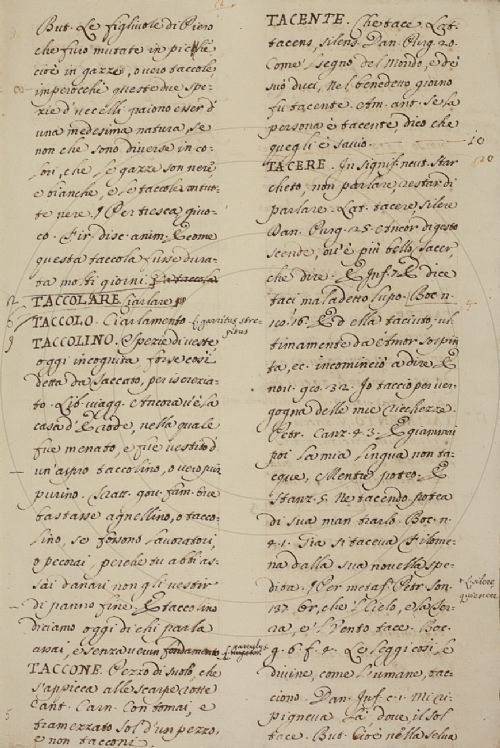 But. Le figliuole di Piero
che furo mutate in picche
cioè in gazze, overo taccole
imperocchè queste due spe-
zie d'uccelli paiono esser d'
una medesima natura, se
non che sono diverse in co-
lori, che le gazze son nere
e bianche, e le taccole
te nere. Per tresca, giuo-
co. Fir. disc. anim. E come
questa taccola fusse dura-
ta molti giorni.
TACCOLARE. Ciarlare
TACCOLO. Ciarlamento.
TACCOLINO. Spezie di veste
oggi incognita forse così
detta da Saccato, per iscrezia-
to. Lib. viagg. Ancora v'è la
casa d' Erode, nella quale
fue menato, e fue vestito d'
un' aspro taccolino, o vero
purino. Tratt. gov. fam.
bastasse agnellino, o tacco-
lino, se fossono lavoratori,
o pecorai, perchè tu abbi as-
sai danari non gli vestir
di panno fine. E taccolino
diciamo oggi di chi parla
assai, e senza verun fondamento
TACCONE. Pezzo di suolo, che
s'appicca alle scarpe rotte
Cant. Carn. Con tomai, e
tramezzato sol d'un pezzo,
e non tacconi.
TACENTE. Che tace. Lat.
tacens, silens. Dan. Purg. 20.
Come segno del Mondo, e de'
suo' duci, Nel benedetto giorno
fu tacente. Am. ant. Se la
persona è tacente dico che
quegli è savio.
TACERE. In signif. neut. Star
cheto, non parlare, restar di
parlare. Lat. tacere, silere
Dan. Purg. 25. Ancor digesto
scende, ov' è più bello, tacer,
che dire. E Inf. 7. E dice
taci maladetto lupo. Boc. n.
16. Ed ella taciuto, ul-
timamente da Amor sospin-
ta, ec. incominciò a dire. E
nov. 32. Io taccio per ver-
gogna delle mie ricchezze.
Petr. Canz. 43. E giammai
poi la mia lingua non ta-
cque, Mentre poteo. E
Stanz. 5. Ne tacendo potea
di sua man trarlo. Boc. n.
41. Già si taceva Filome-
na dalla sua novella spe-
dita. Per metaf. Petr. son.
137. Or, che 'l Cielo, e la ter-
ra, e 'l vento tace. Boc.
g. 6. f. 4. Le leggi così le
divine, come l'umane, tac-
ciono. Dan. Inf. c. 1. Mi ri-
pigneva là dove il sol
tace. But. Cioè nella selva